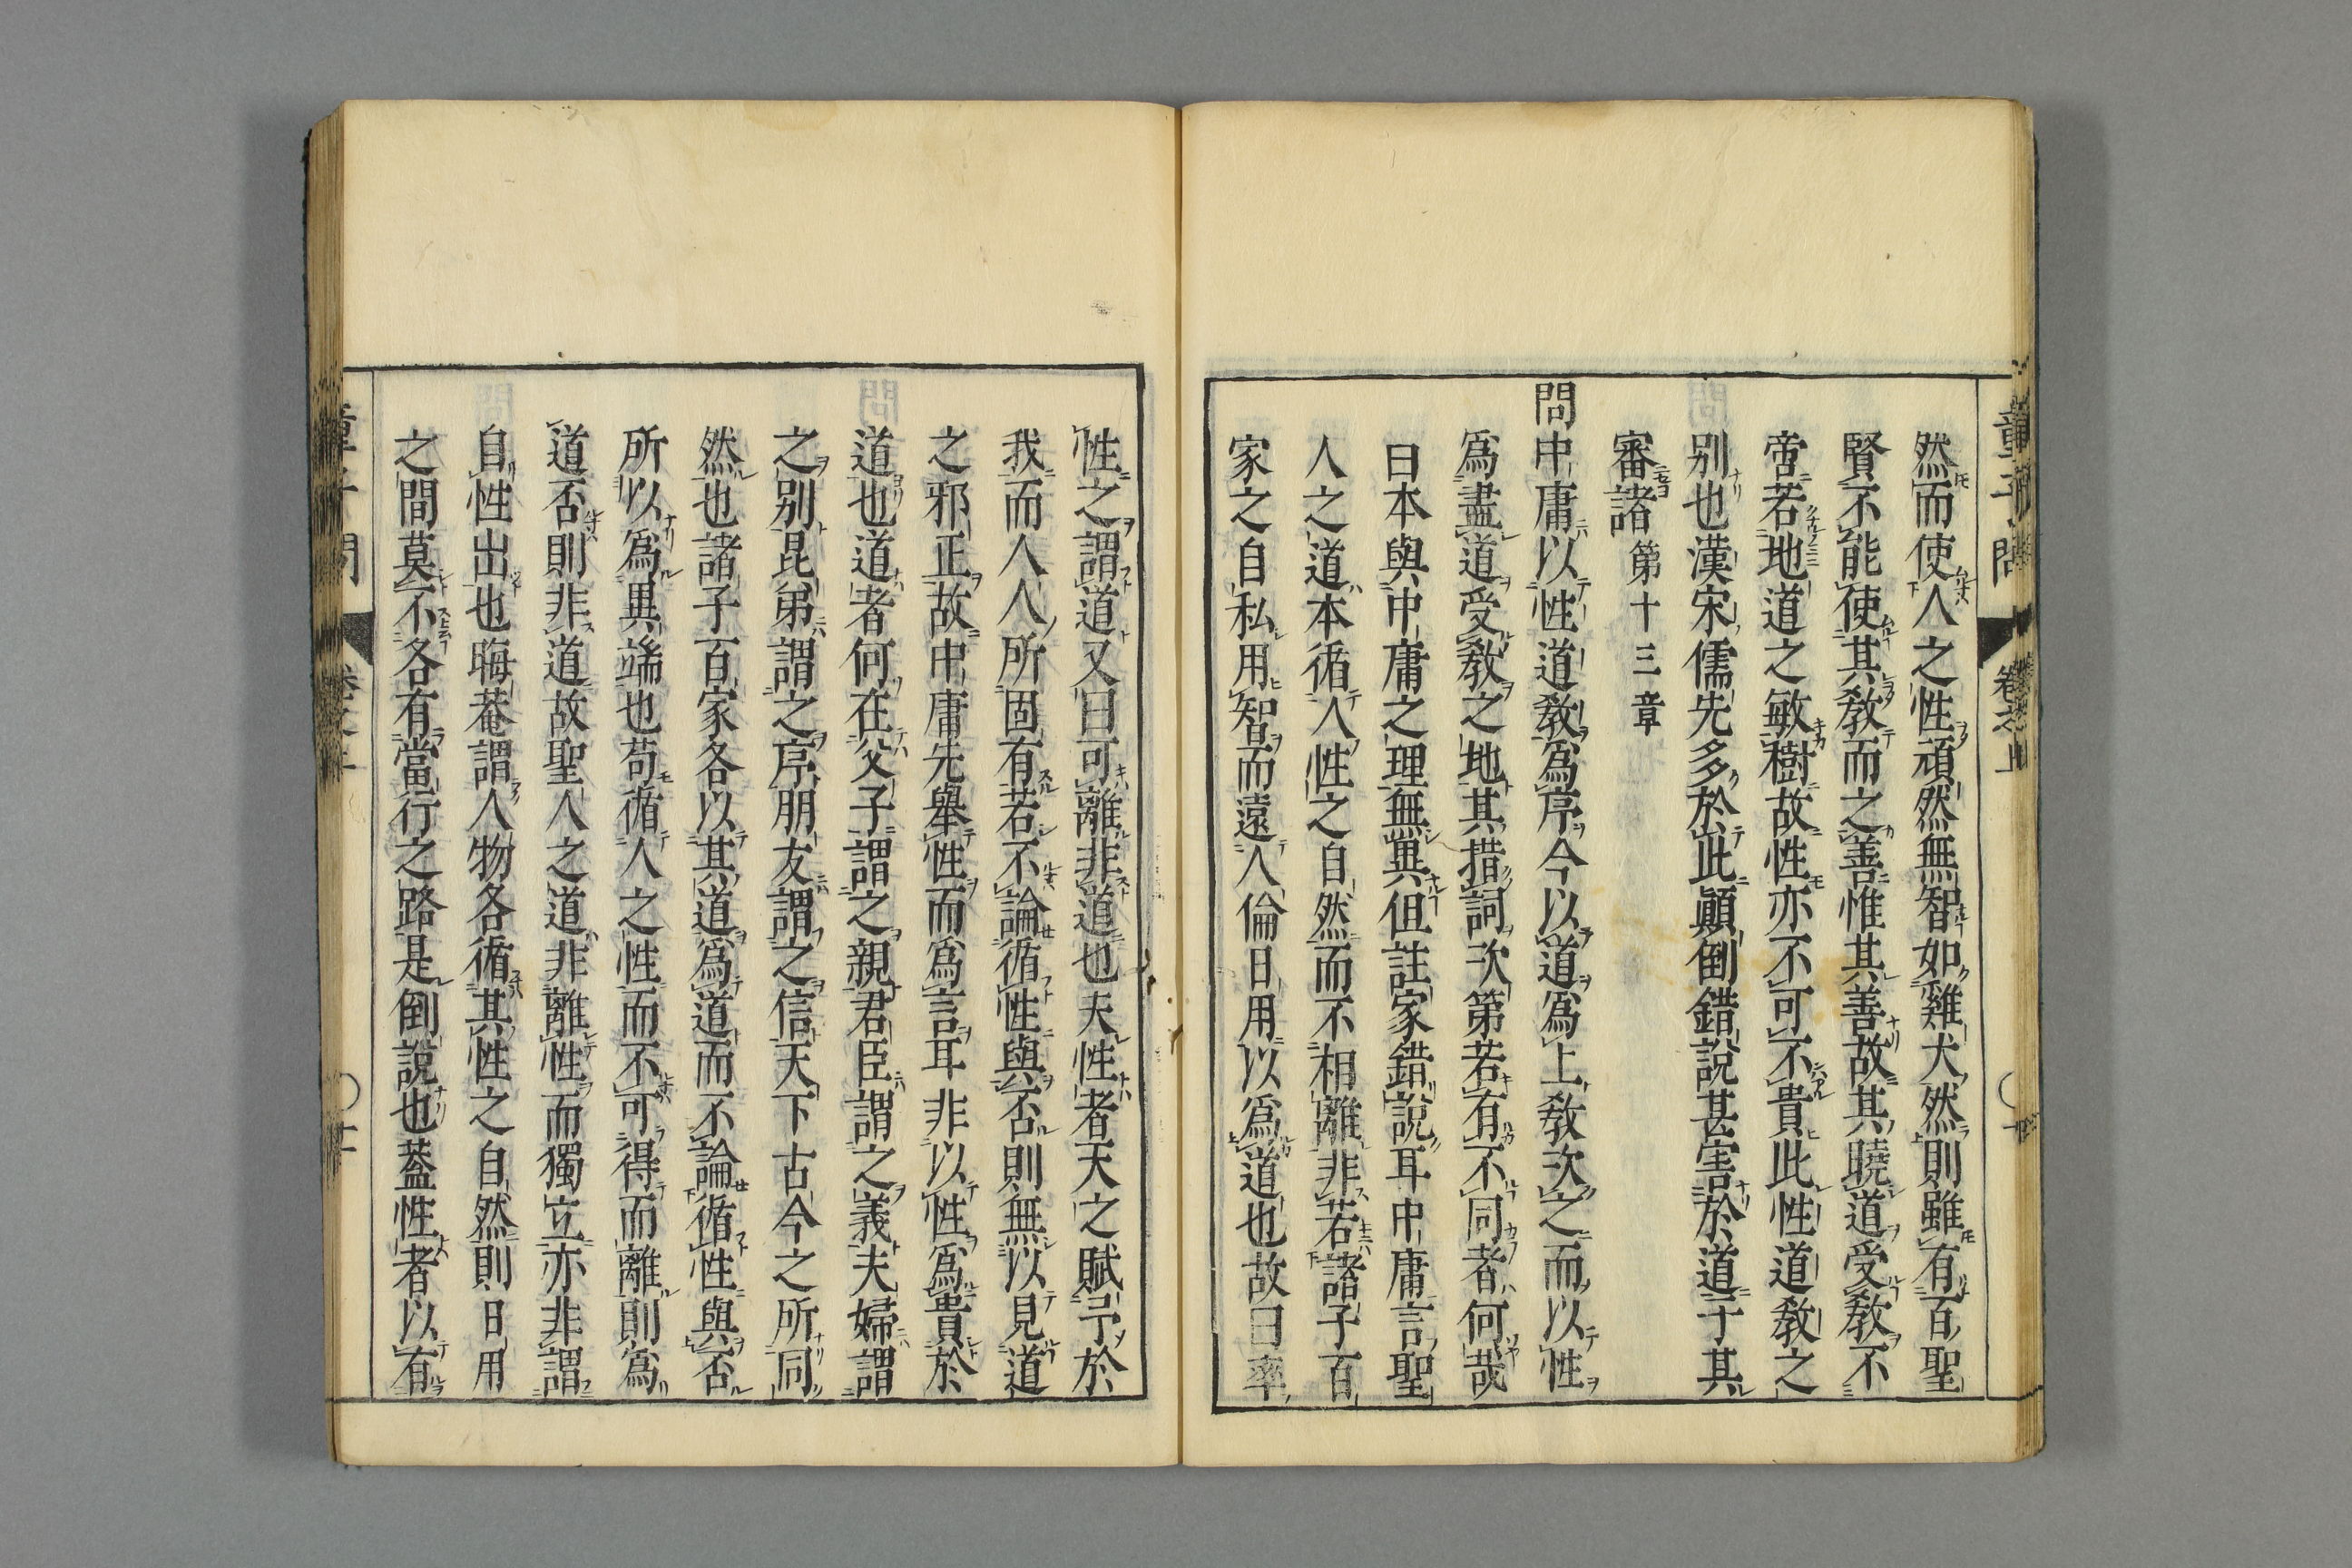 然而使人之性頑然無智如雞犬然則雖有百聖
賢不能使其教而之善惟其善故其曉道受教不
啻若地道之敏樹故性亦不可不貴此性道教之
別也漢宋儒先多於此顚倒錯說甚害於道于其
審諸 第十三章
問中庸以性道教爲序今以道爲上教次之而以性
爲盡道受教之地其措詞次第若有不同者何哉
曰本與中庸之理無異但註家錯說耳中庸言聖
人之道本循人性之自然而不相離非若諸子百
家之自私用智而遠人倫日用以爲道也故曰率
性之謂道又曰可離非道也夫性者天之賦予於
我而人人所固有若不論循性與否則無以見道
之邪正故中庸先舉性而爲言耳非以性爲貴於
道也道者何在父子謂之親君臣謂之義夫婦謂
之別昆弟謂之序朋友謂之信天下古今之所同
然也諸子百家各以其道爲道而不論循性與否
所以爲異端也苟循人之性而不可得而離則爲
道否則非道故聖人之道非離性而獨立亦非謂
自性出也晦菴謂人物各循其性之自然則日用
之間莫不各有當行之路是倒說也蓋性者以有
童子問
卷之上